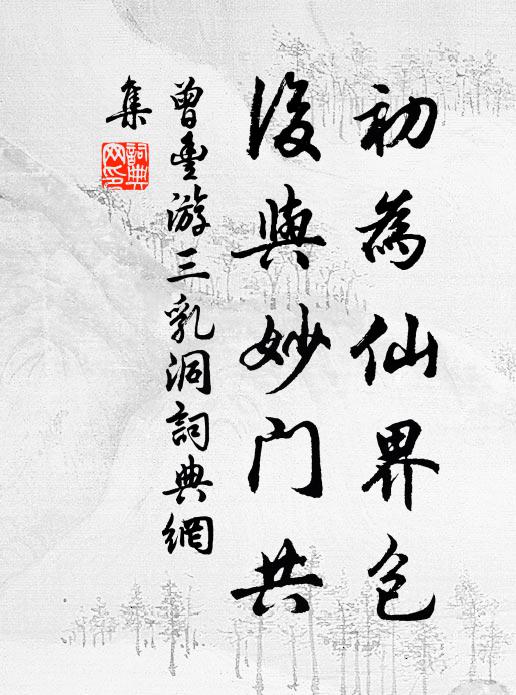 初為仙界包
後與妙門共
曾豐游三乳洞詞典網
集
詞典
网印